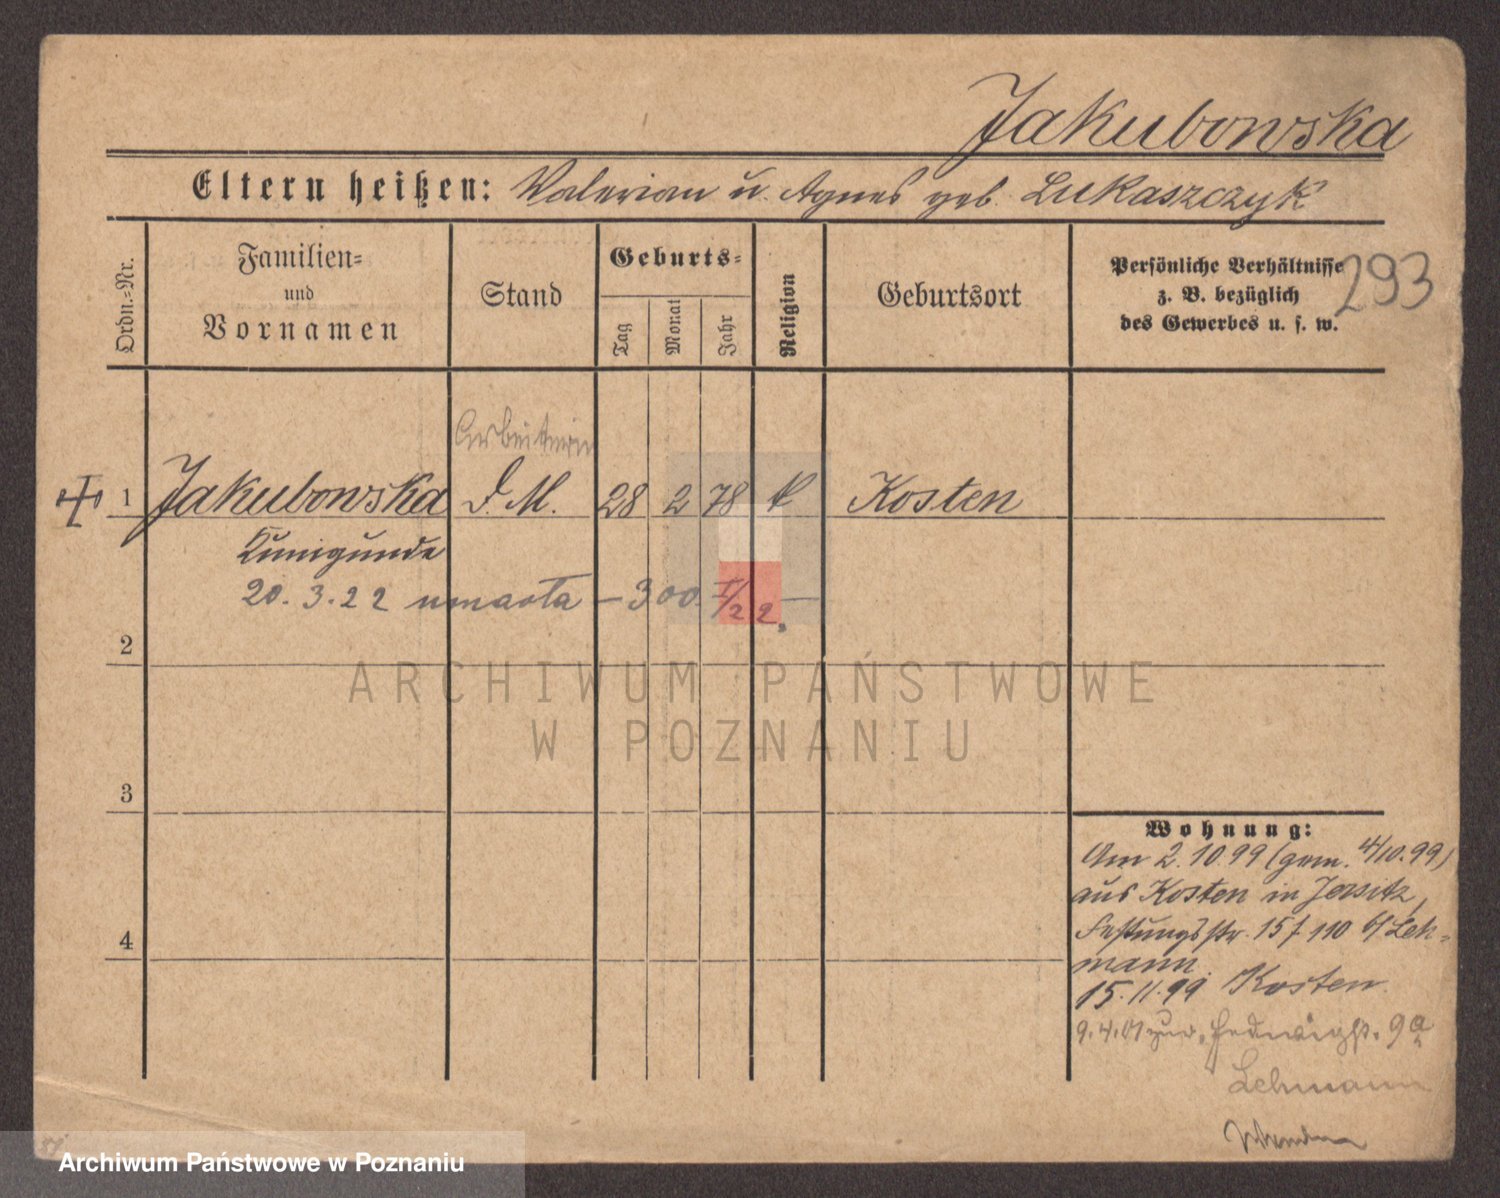 Jakubowska
Eltern heißen: Valerian u. Agnes geb. Lukaszczyk
Ordn.=Nr.
Familien=
und
Vornamen
Stand
Geburts=
Tag
Monat
Jahr
Religion
Geburtsort
Persönliche Verhältnisse
z. B. bezüglich
des Gewerbes u. s. w.
293
Arbeiterin
1 Jakubowska D. M. 28 2 78 k Kosten
Kunigunde
20. 3. 22 umarła – 300. I/22. –
2
ARCHIWUM PAŃSTWOWE
W POZNANIU
3
4
Wohnung:
Am 2. 10. 99 (gem. 4/10. 99)
aus Kosten in Jersitz,
Festungsstr. 15 f 110 b/ Leh-
mann.
15. 11. 99 Kosten.
9. 4. 01 zur. Hedwigst. 9a
Lehmann
Archiwum Państwowe w Poznaniu